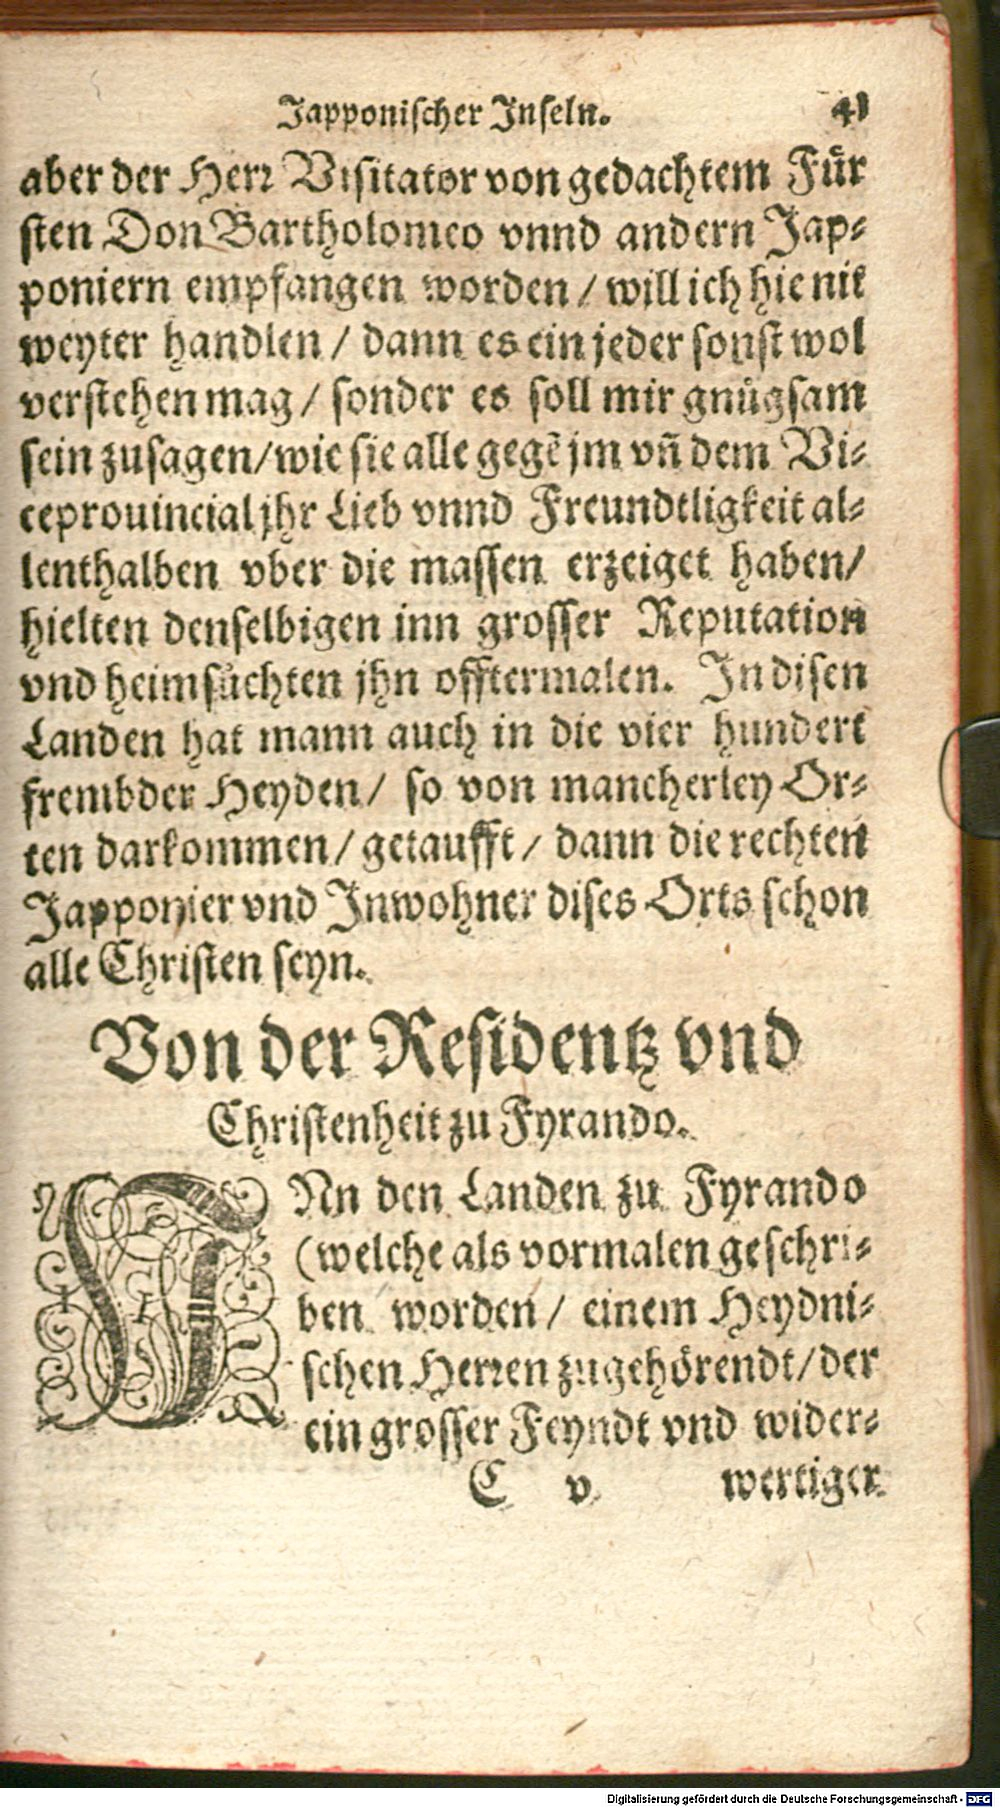 Japponischer Inseln. 41
aber der Herr Visitator von gedachtem Für
sten Don Bartholomeo vnnd andern Jap-
poniern empfangen worden / will ich hie nit
weyter handlen / dann es ein jeder sonst wol
verstehen mag / sonder es soll mir gnůgsam
sein zusagen/wie sie alle gegẽ jm vñ dem Vi-
ceprouincial jhr Lieb vnnd Freundtligkeit al-
lenthalben vber die massen erzeiget haben/
hielten denselbigen inn grosser Reputation
vnd heimsůchten jhn offtermalen. In disen
Landen hat mann auch in die vier hundert
frembder Heyden / so von mancherley Or-
ten darkommen / getaufft / dann die rechten
Japponier vnd Inwohner dises Orts schon
alle Christen seyn.
Von der Residentz vnd
Christenheit zu Fyrando.
INn den Landen zu Fyrando
(welche als vormalen geschri-
ben worden / einem Heydni-
schen Herren zugehörendt/der
ein grosser Feyndt vnd wider-
C v wertiger
Digitalisierung gefördert durch die Deutsche Forschungsgemeinschaft - DFG